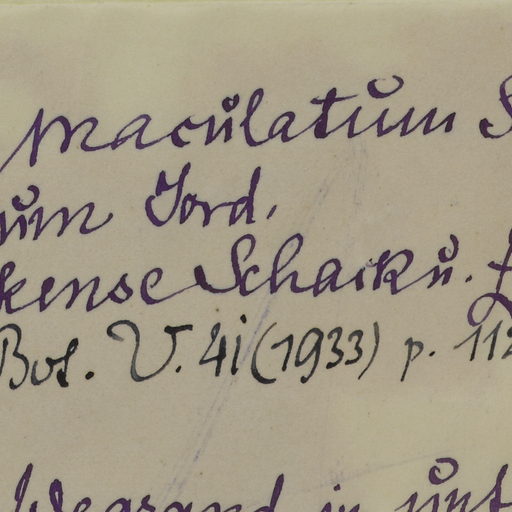 maculatum S
um Jord.
kense Schack u. f
Bot. V. 41 (1933) p. 112
Wegrand in unt